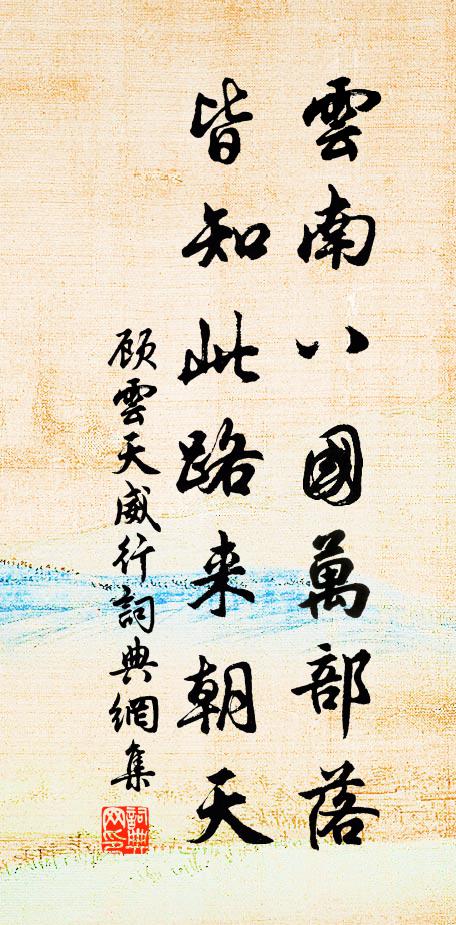 雲南八國萬部落
皆知此路来朝天
顾雲天威行詞典網集
詞典網印